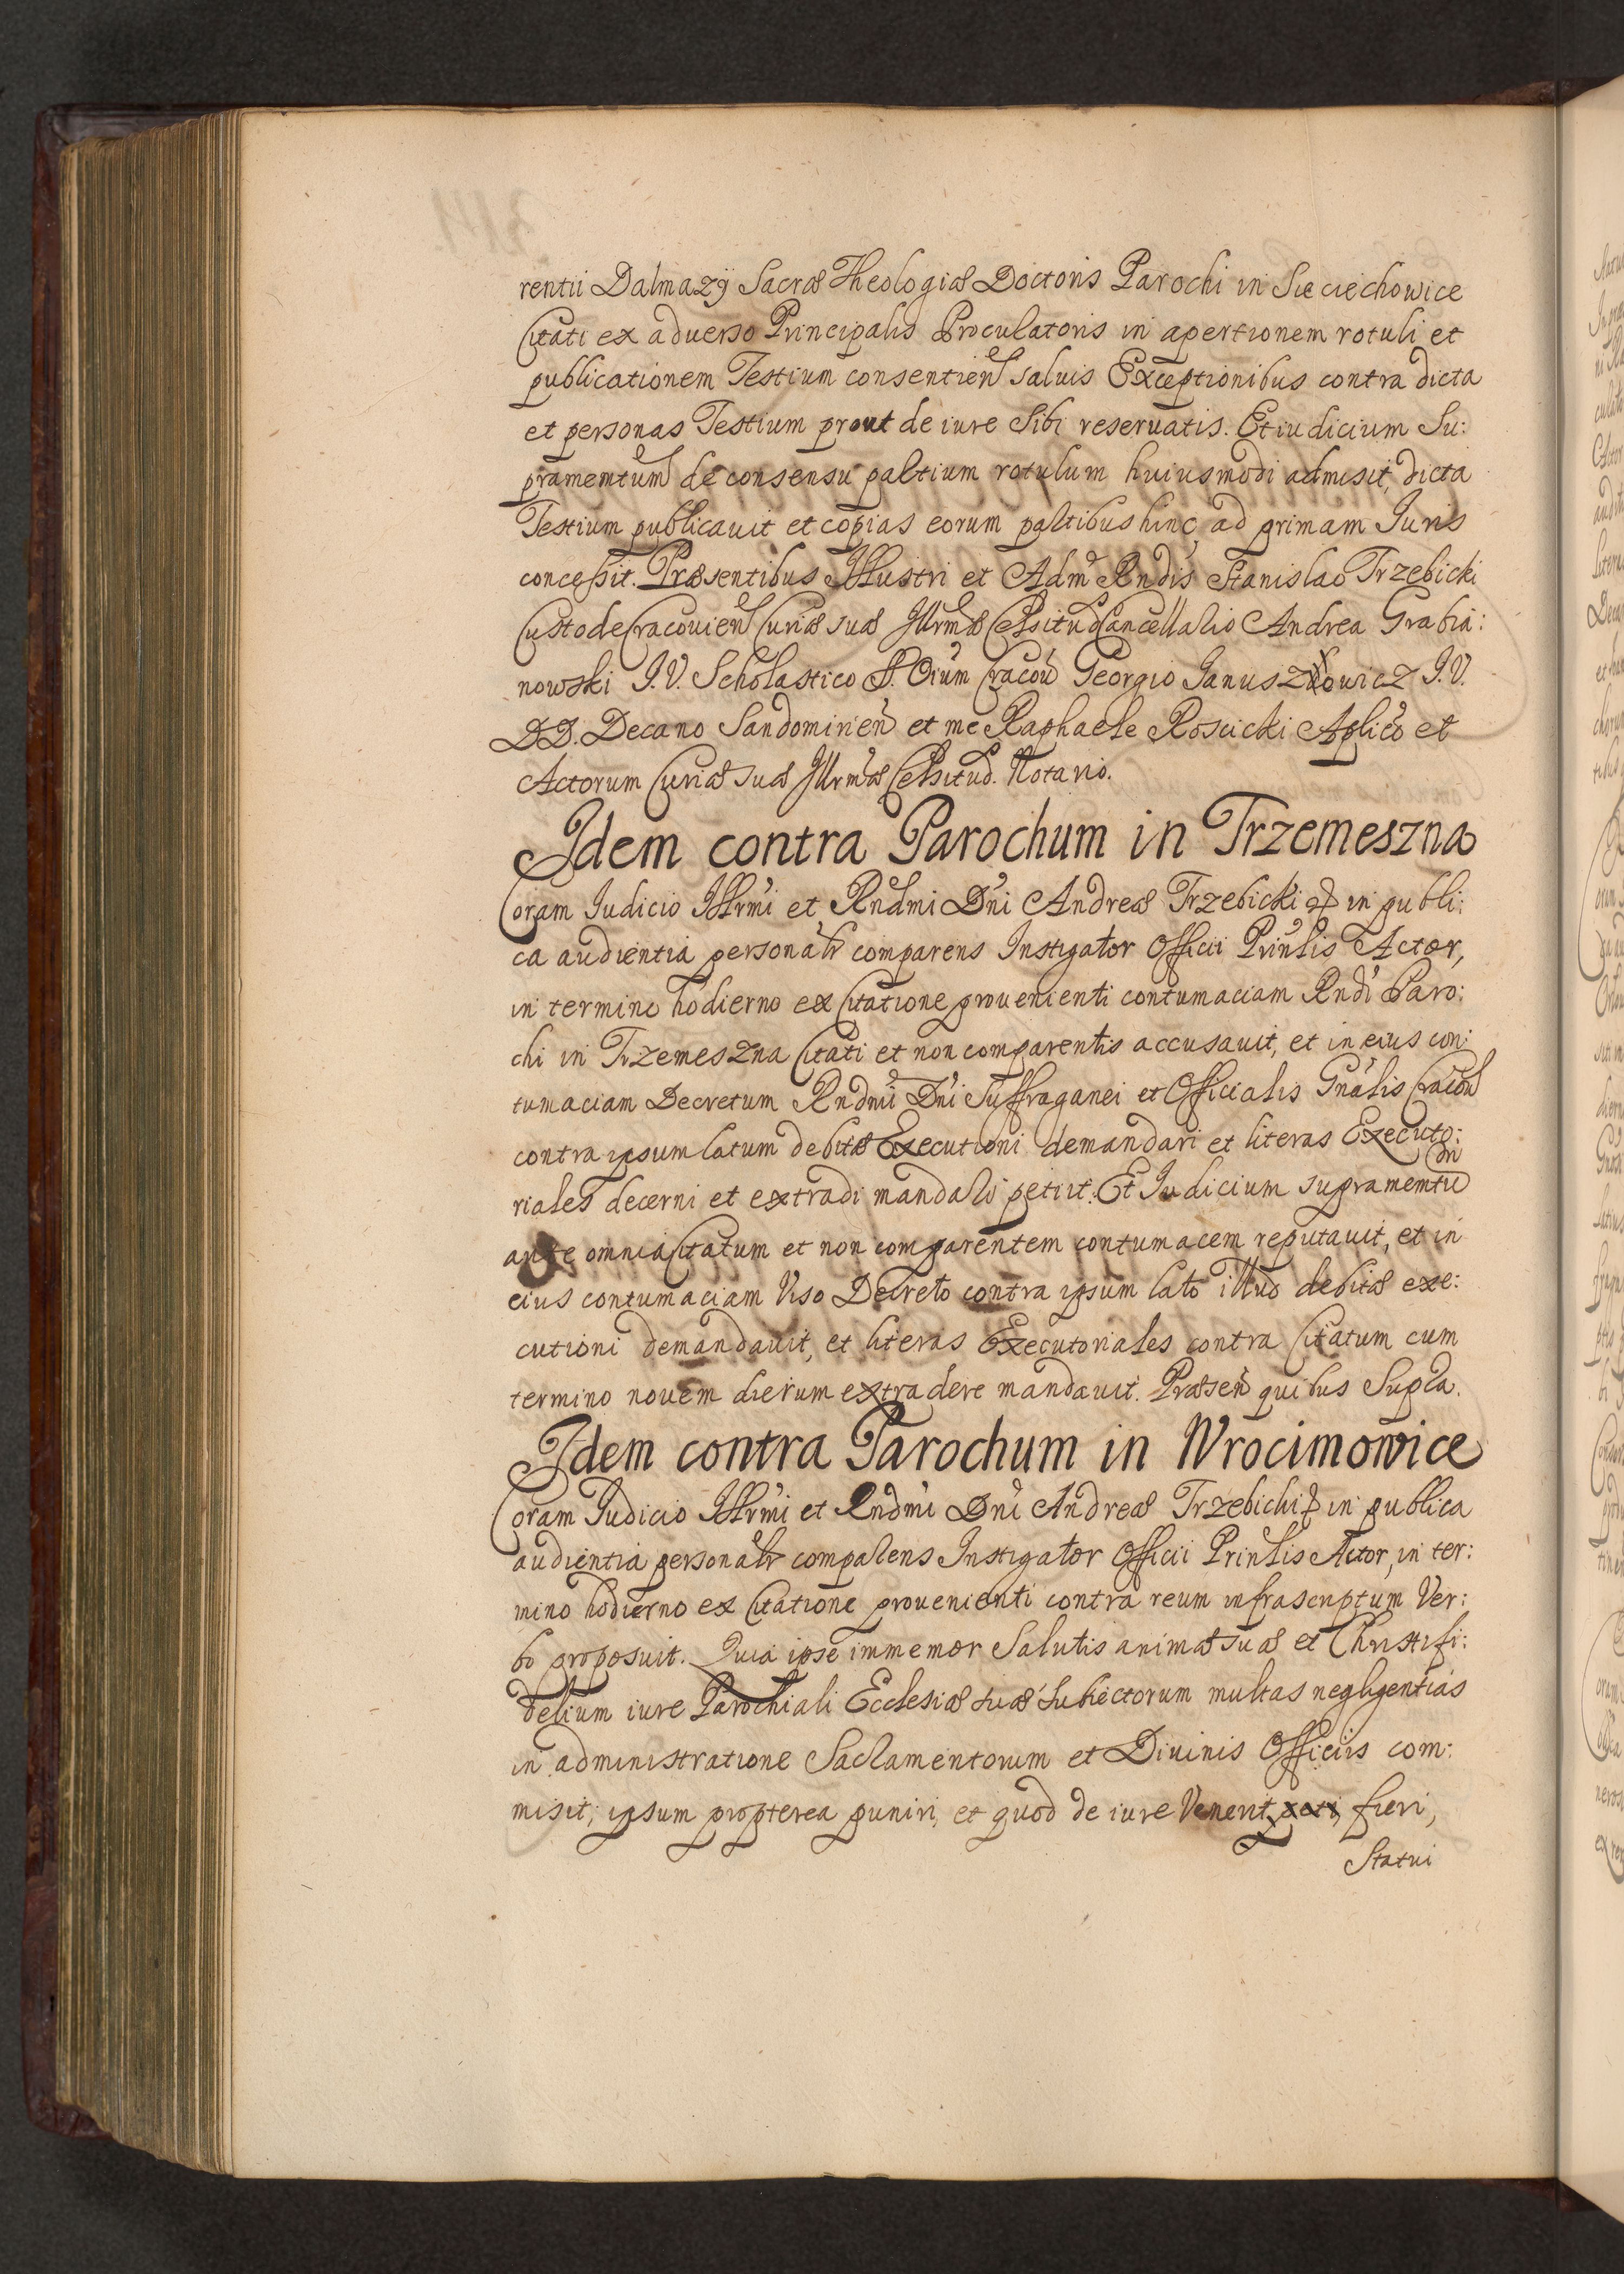 rentii Dalmazÿ Sacræ Theologiæ Doctoris Parochi in Sieciechowice
Citati ex aduerso Principalis Proculatoris in apertionem rotuli et
publicationem Testium consentien̄ saluis Exceptionibus contra dicta
et personas Testium prout de iure sibi reseruatis. Et iudicium Su:
pramemtum de consensu partium rotulum huiusmodi admisit, dicta
Testium publicauit et copias eorum partibus hinc ad primam Iuris
concessit. Præsentibus Illustri et Admˢ Rndis Stanislao Trzebicki
Custode Cracouien̄ Curiæ suæ Illrmæ Celsitud Cancellario Andrea Grabia:
nowski I.V. Scholastico S. Oium Cracou Georgio Ianuszowicz I.V.
DD. Decano Sandomirien̄ et me Raphaele Roscicki Aplico et
Actorum Curiæ suæ Illrmæ Celsitud. Notario.
Idem contra Parochum in Trzemeszna
Coram Iudicio Illrmi et Rndmi Dni Andreæ Trzebicki & in publi:
ca audientia personalr comparens Instigator Officii Prinlis Actor,
in termino hodierno ex Citatione prouenienti contumaciam Rndi Paro:
chi in Trzemeszna Citati et non comparentis accusauit, et in eius con:
tumaciam Decretum Rndmi Dni Suffraganei et Officialis Gnalis Cracou
contra ipsum latum debitæ Executioni demandari et literas Executo:
riales decerni et extradi mandari petiit. Et Iudicium supramemtu
ante omnia Citatum et non comparentem contumacem reputauit, et in
eius contumaciam Viso Decreto contra ipsum lato illud debitæ exe:
cutioni demandauit, et literas Executoriales contra Citatum cum
termino nouem dierum extradere mandauit. Præsen̄ quibus Supra.
Idem contra Parochum in Wrocimowice
Coram Iudicio Illrmi et Rndmi Dni Andreæ Trzebichi & in publica
audientia personalr comparens Instigator Officii Prinlis Actor, in ter:
mino hodierno ex Citatione prouenienti contra reum infrascriptum Ver:
bo proposuit. Quia ipse immemor Salutis animæ suæ et Christifi:
delium iure Parochiali Ecclesiæ suæ Subiectorum multas negligentias
in administratione Sacramentorum et Diuinis Officiis com:
misit, ipsum propterea puniri, et quod de iure Venerit fieri,
Statui